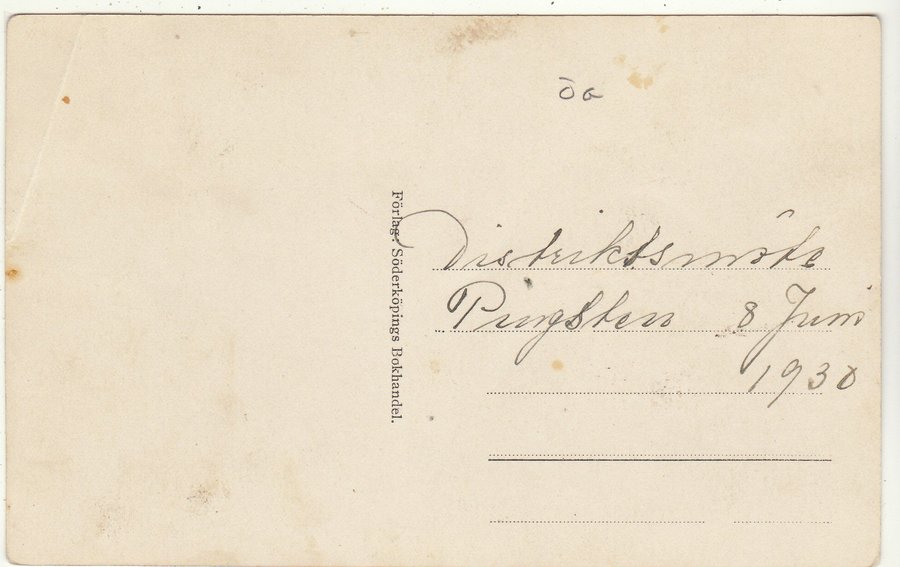 Öa
Förlag: Söderköpings Bokhandel.
Distriktsmöte
Pingsten 8 Juni
1930